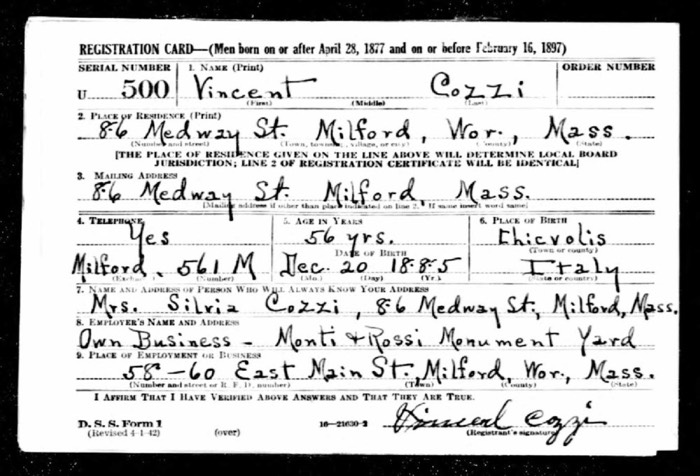 REGISTRATION CARD—(Men born on or after April 28, 1877 and on or before February 16, 1897)
SERIAL NUMBER 1. NAME (Print) ORDER NUMBER
U 500 Vincent Cozzi
(First) (Middle) (Last)
2. PLACE OF RESIDENCE (Print)
86 Medway St. Milford, Wor., Mass.
(Number and street) (Town, township, village, or city) (County) (State)
[THE PLACE OF RESIDENCE GIVEN ON THE LINE ABOVE WILL DETERMINE LOCAL BOARD
JURISDICTION; LINE 2 OF REGISTRATION CERTIFICATE WILL BE IDENTICAL]
3. MAILING ADDRESS
86 Medway St. Milford, Mass.
[Mailing address if other than place indicated on line 2. If same insert word same]
4. TELEPHONE 5. AGE IN YEARS 6. PLACE OF BIRTH
Yes 56 yrs. Chicvolis
DATE OF BIRTH (Town or county)
Milford. 561 M Dec. 20 1885 Italy
(Number) (Mo.) (Day) (Yr.) (State or country)
7. NAME AND ADDRESS OF PERSON WHO WILL ALWAYS KNOW YOUR ADDRESS
Mrs. Silvia Cozzi, 86 Medway St., Milford, Mass.
8. EMPLOYER'S NAME AND ADDRESS
Own Business - Monti & Rossi Monument Yard
9. PLACE OF EMPLOYMENT OR BUSINESS
58-60 East Main St. Milford, Wor., Mass.
(Number and street or R. F. D. number) (Town) (County) (State)
I AFFIRM THAT I HAVE VERIFIED ABOVE ANSWERS AND THAT THEY ARE TRUE.
D. S. S. Form 1 16-21630-2 Vincent Cozzi
(Revised 4-1-42) (over) (Registrant's signature)